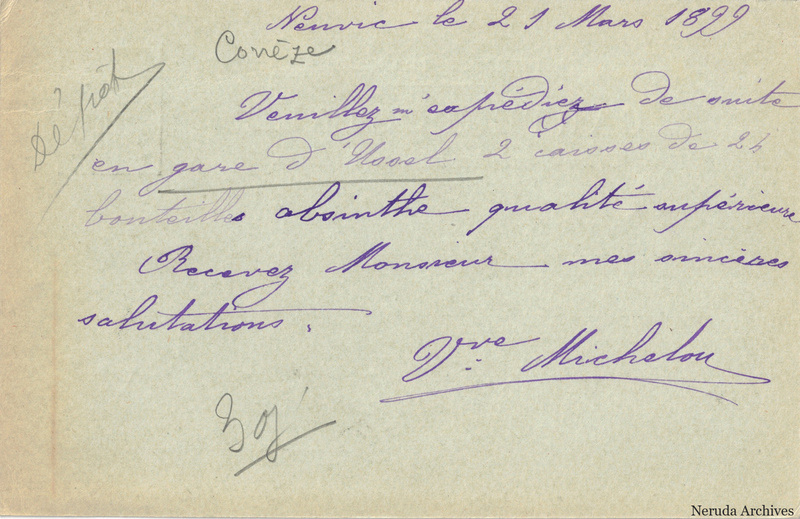 Neuvic le 21 Mars 1899
Corrèze
Veuillez m'expédiez de suite
en gare d'Ussel 2 caisses de 24
bouteilles absinthe qualité supérieure
Recevez Monsieur mes sincères
salutations.
Vve Michelou
Neruda Archives